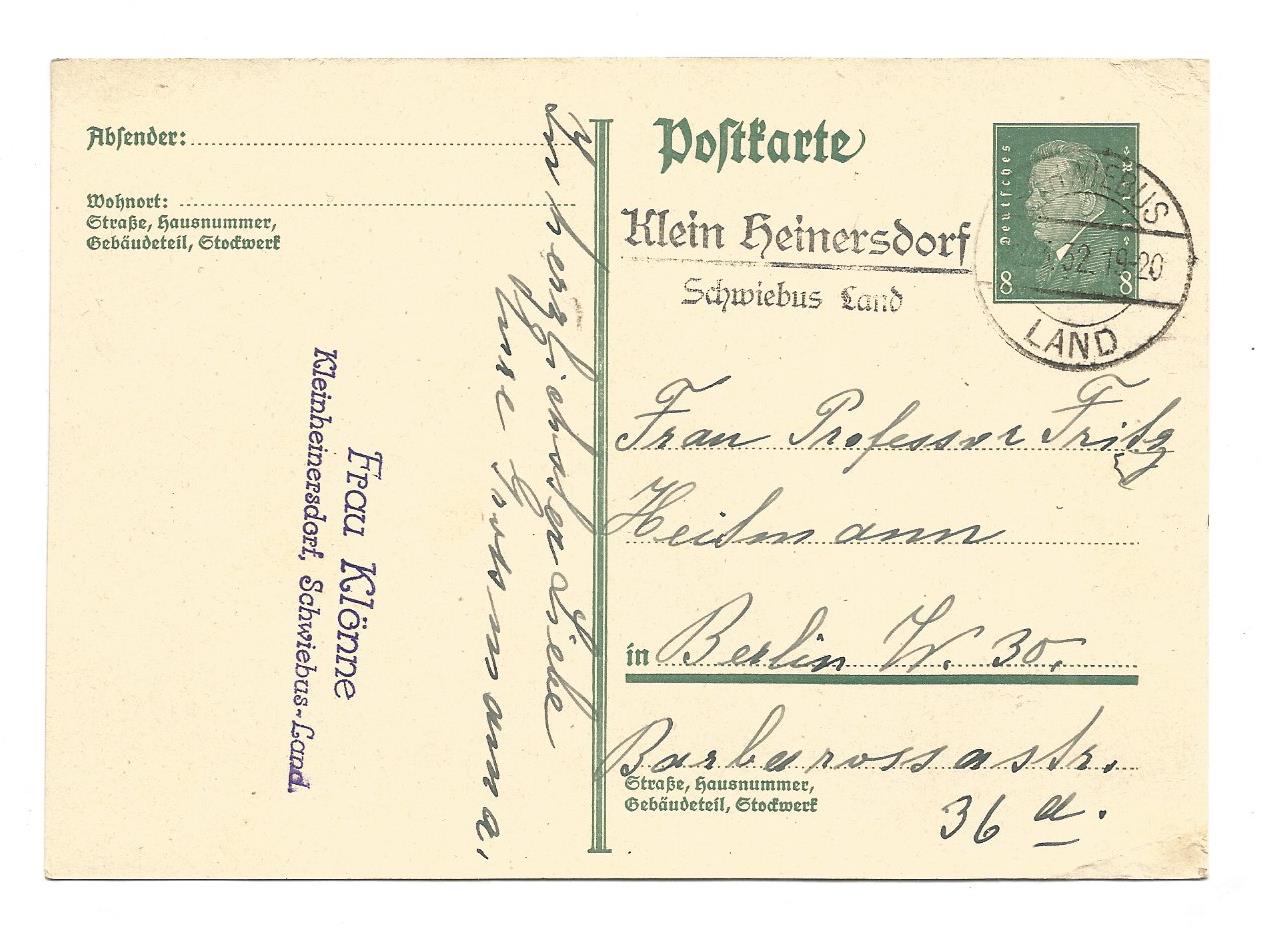 Absender:
Wohnort:
Straße, Hausnummer,
Gebäudeteil, Stockwerk
In herzlichster Liebe
Ihre Grossmama.
Frau Klönne
Kleinheinersdorf, Schwiebus-Land.
Postkarte
Deutsches Reich
8 8
Klein Heinersdorf
Schwiebus Land
SCHWIEBUS
32. 19-20
LAND
Frau Professor Fritz
Heilmann
in Berlin W. 30.
Barbarossastr.
Straße, Hausnummer,
Gebäudeteil, Stockwerk
36 a.